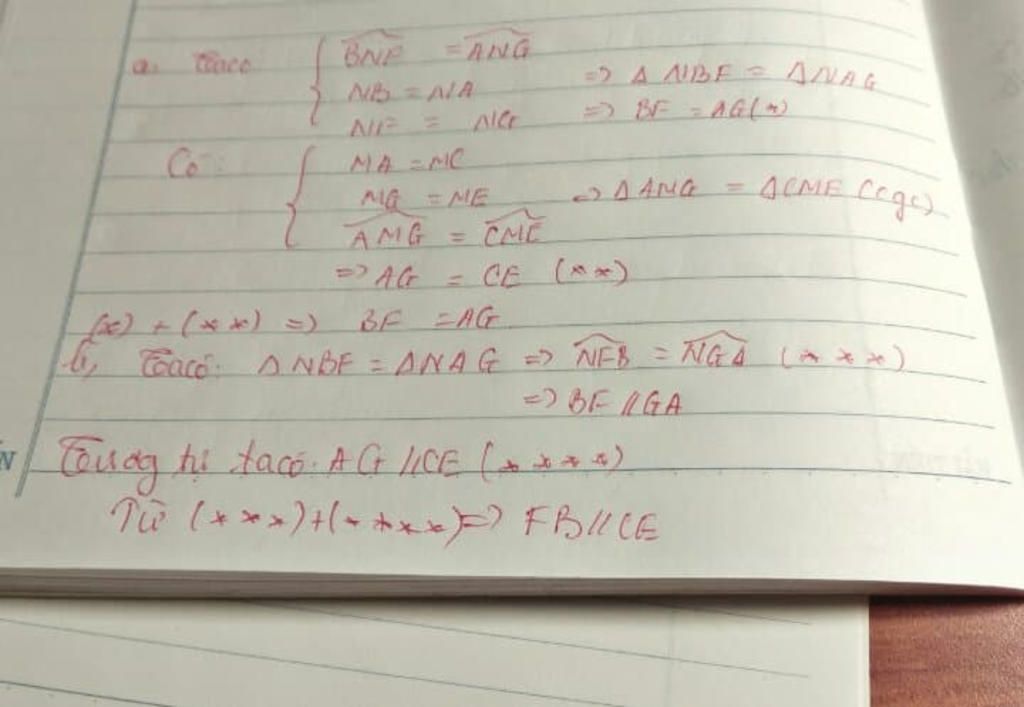 a. Ta có { \widehat{BNF} = \widehat{ANG}
NB = NA => Δ NBF = ΔNAG
NF = NG => BF = AG (*)
Có: { MA = MC
MG = ME => Δ AMG = ΔCME (cgc)
\widehat{AMG} = \widehat{CME}
=> AG = CE (**)
(*) + (**) => BF = AG
b, Ta có: ΔNBF = ΔNAG => \widehat{NFB} = \widehat{NGA} (***)
=> BF // GA
Tương tự ta có. AG // CE (****)
Từ (***)+(****)=> FB // CE
N